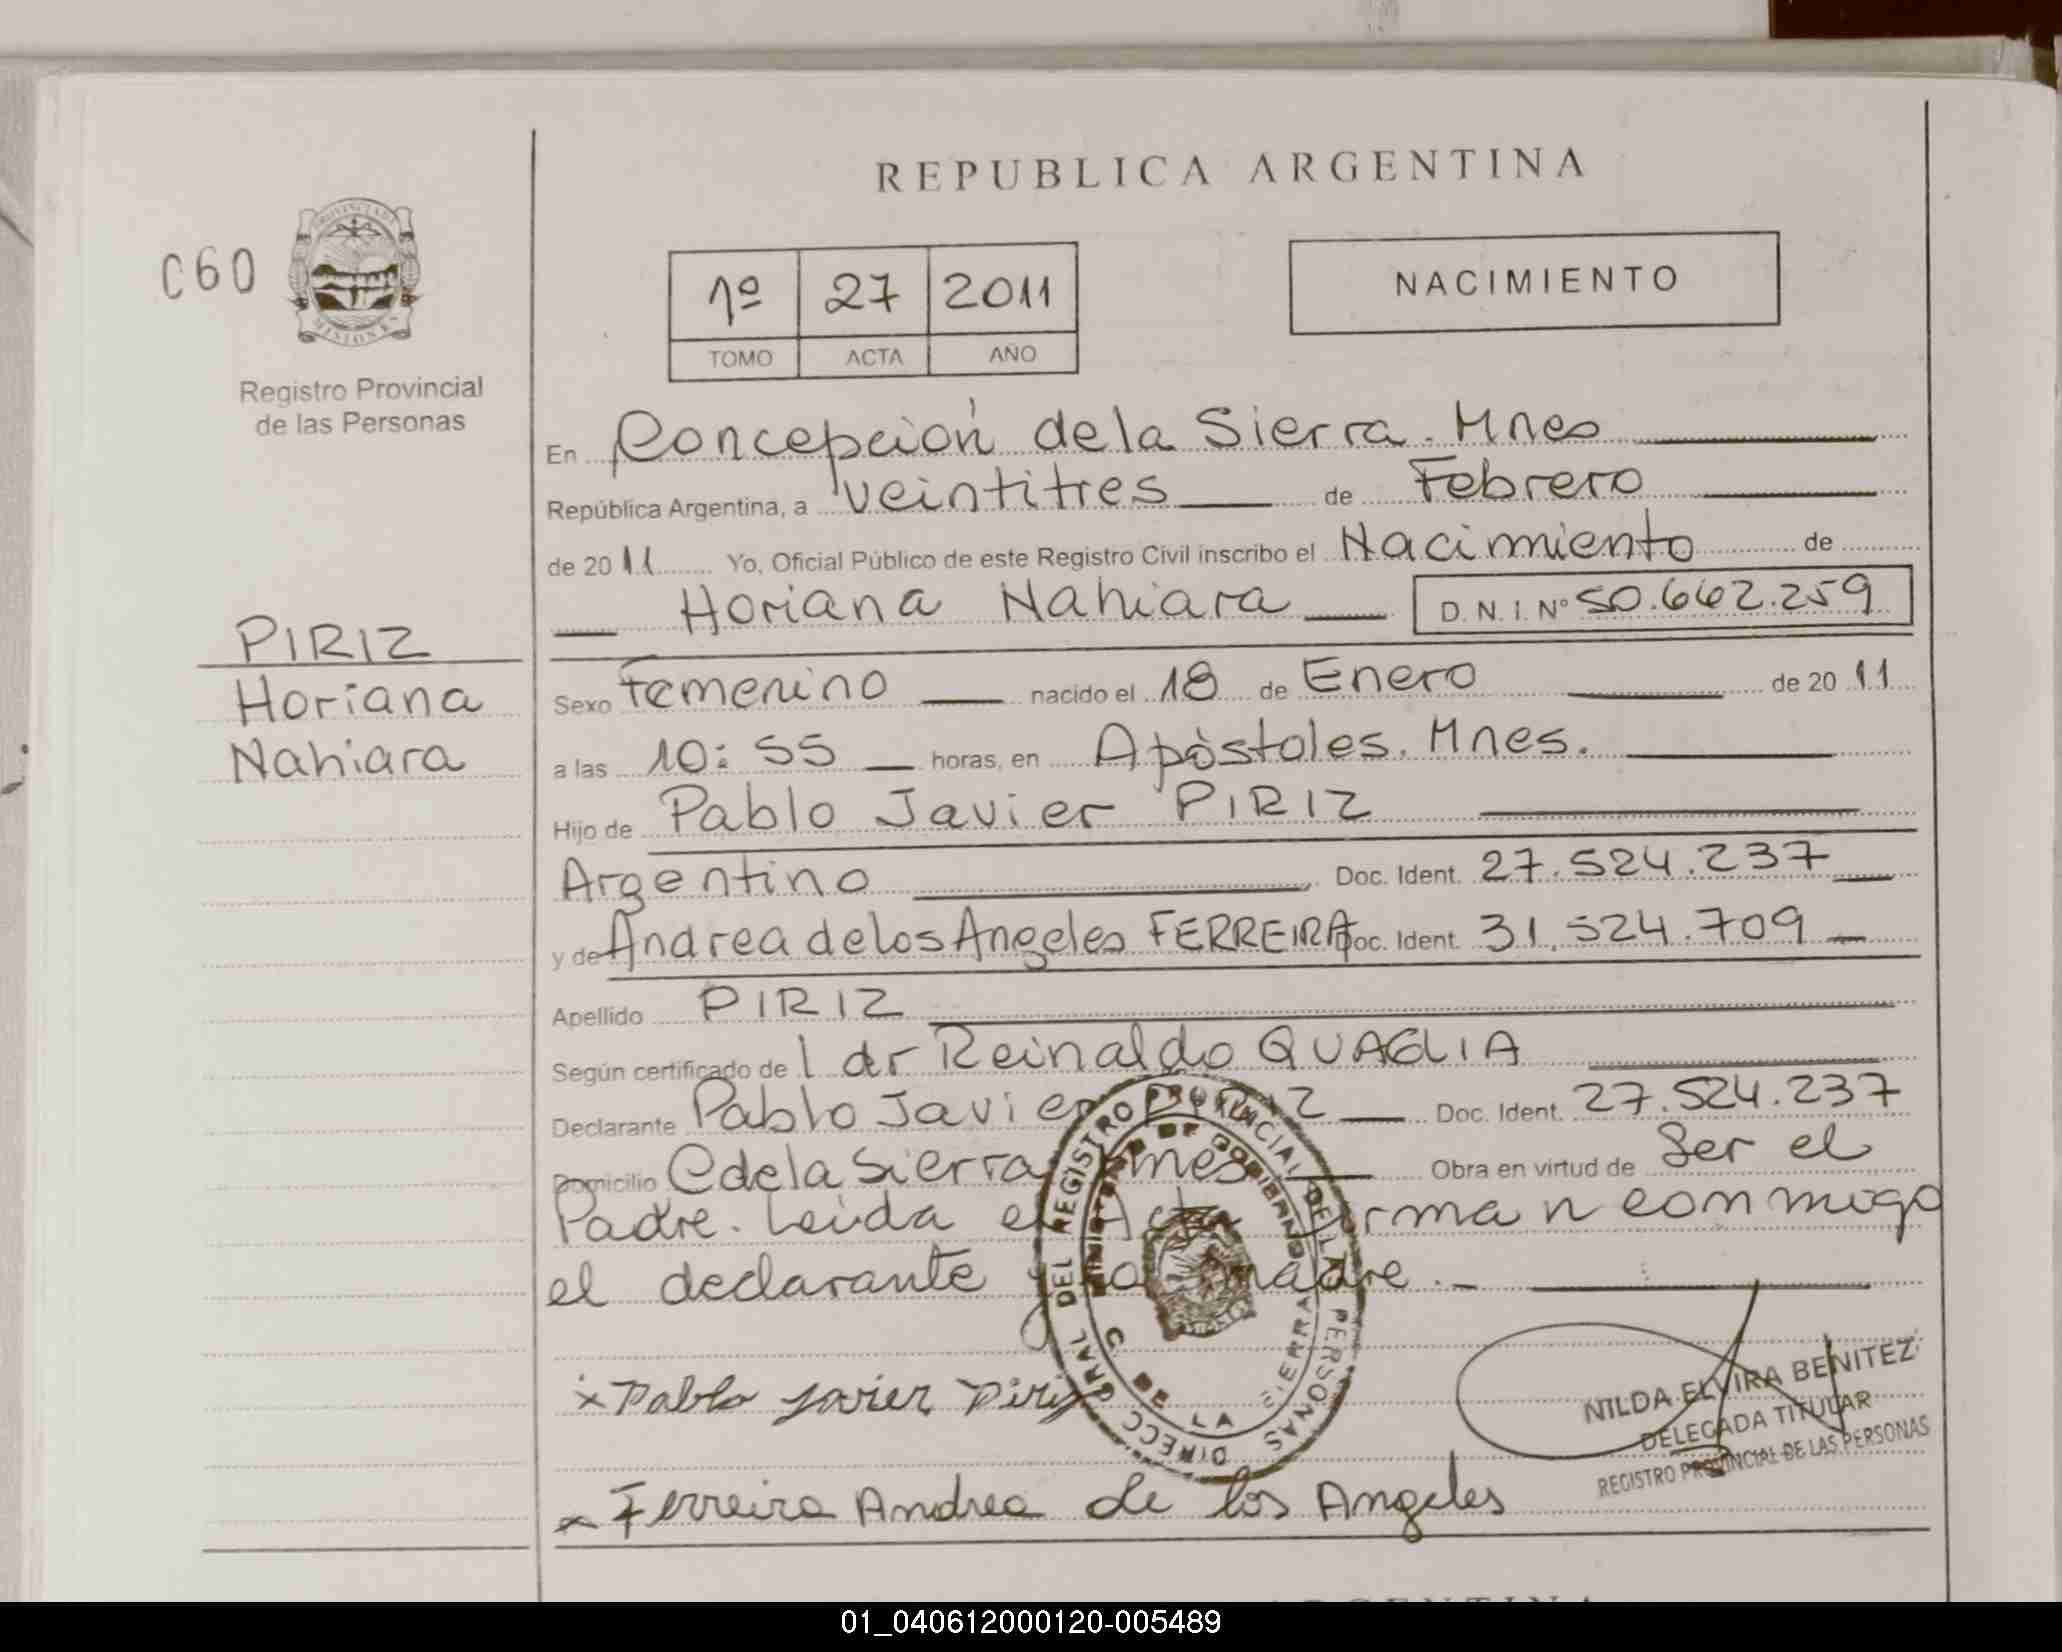 REPUBLICA ARGENTINA
C60
PROVINCIA DE
MISIONES
Registro Provincial
de las Personas
1º 27 2011
TOMO ACTA AÑO
NACIMIENTO
PIRIZ
Horiana
Nahiara
En Concepción de la Sierra. Mnes
República Argentina, a veintitres de Febrero
de 2011 Yo, Oficial Público de este Registro Civil inscribo el Nacimiento de
Horiana Nahiara D.N.I.Nº 50.662.259
Sexo Femenino nacido el 18 de Enero de 2011
a las 10:55 horas, en Apóstoles. Mnes.
Hijo de Pablo Javier PIRIZ
Argentino Doc. Ident. 27.524.237
y de Andrea de los Angeles FERREIRA Doc. Ident. 31.524.709
Apellido PIRIZ
Según certificado de l dr Reinaldo QUAGLIA
Declarante Pablo Javier PIRIZ Doc. Ident. 27.524.237
Domicilio C de la Sierra Mnes Obra en virtud de Ser el
Padre. Leida el Acta firman conmigo
el declarante y la madre.-
DIRECC GRAL DEL REGISTRO PROVINCIAL DE LAS PERSONAS
MINISTERIO DE GOBIERNO
C DE LA SIERRA
x Pablo Javier Piriz
NILDA ELVIRA BENITEZ
DELEGADA TITULAR
REGISTRO PROVINCIAL DE LAS PERSONAS
x Ferreira Andrea de los Angeles
01_040612000120-005489